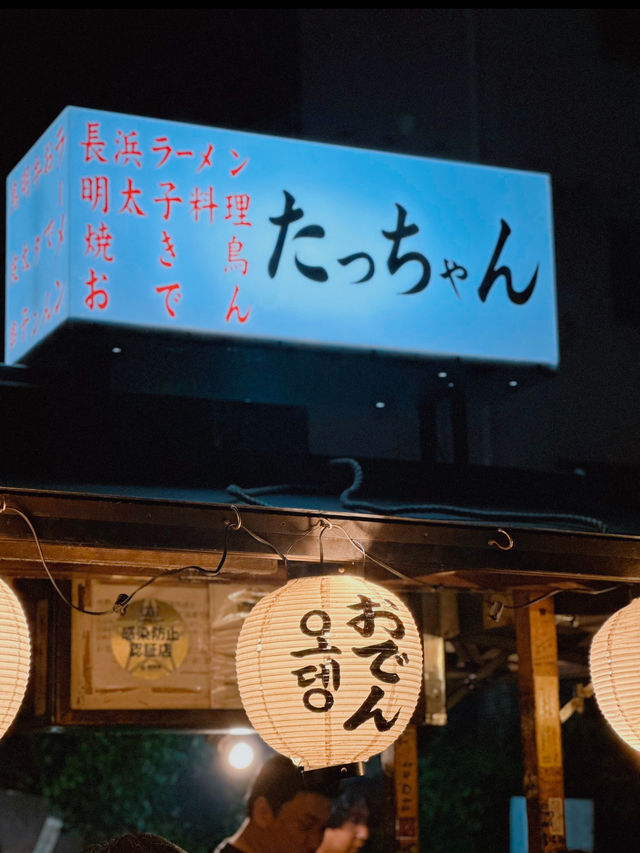 長浜ラーメン
明太子料理
焼き鳥
おでん
たっちゃん
おでん
오뎅
感染防止
認証店